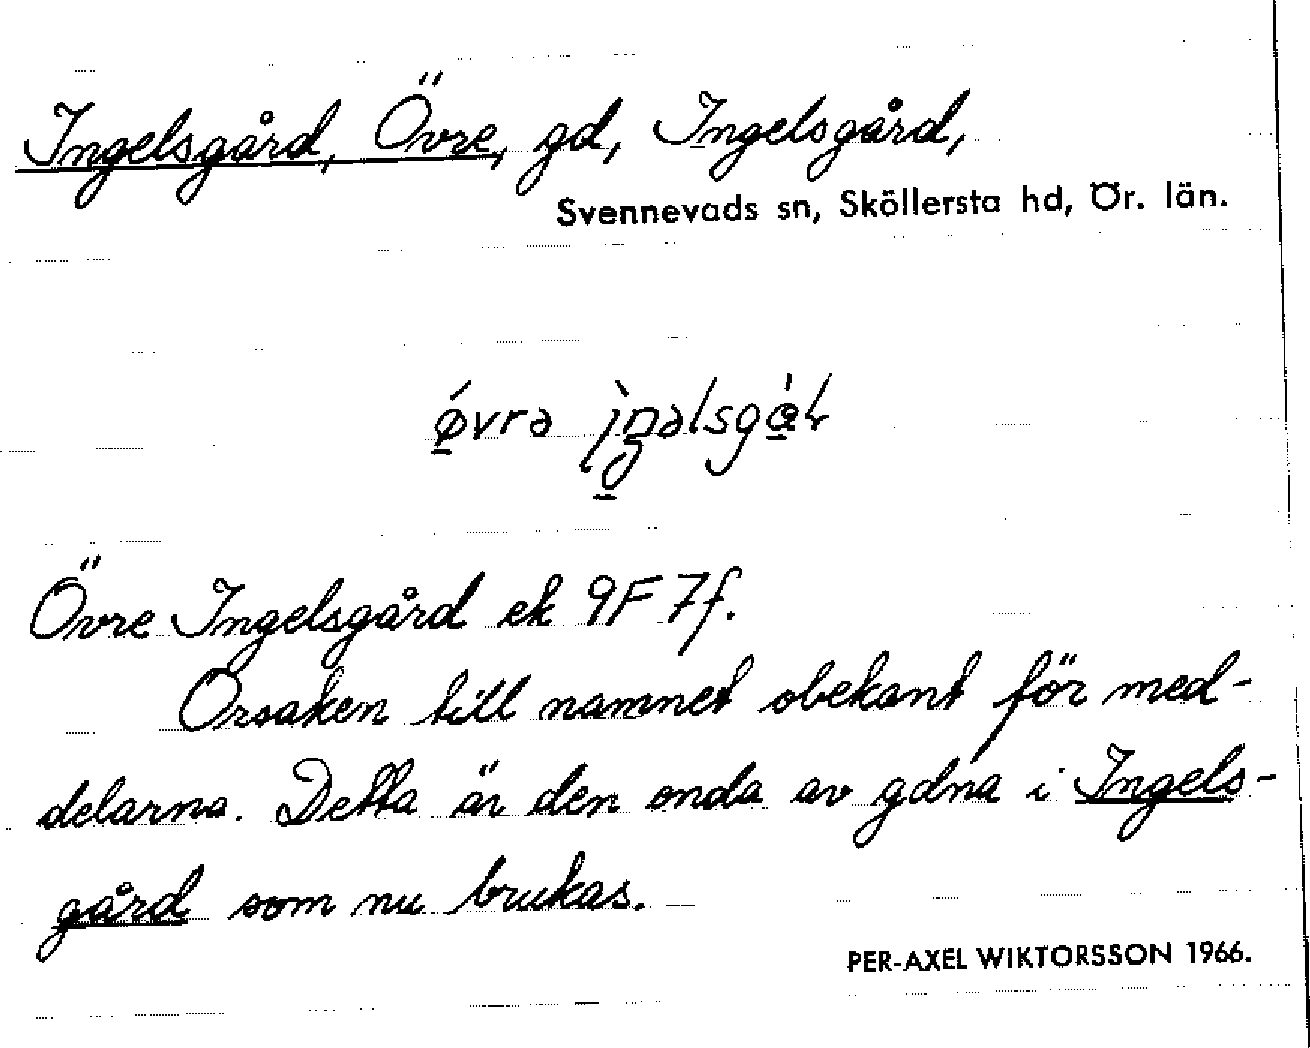 Ingelsgård, Övre, gd, Ingelsgård,
Svennevads sn, Sköllersta hd, Ör. län.
Övre Ingelsgård ek 9F 7f.
Orsaken till namnet obekant för med-
delarna. Detta är den enda av gdna i Ingels-
gård som nu brukas.
PER-AXEL WIKTORSSON 1966.